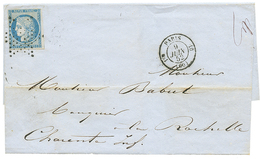 PARIS
9
JUIN
Monsieur
Monsieur Babut
Banquier
La Rochelle
Charente Inf.